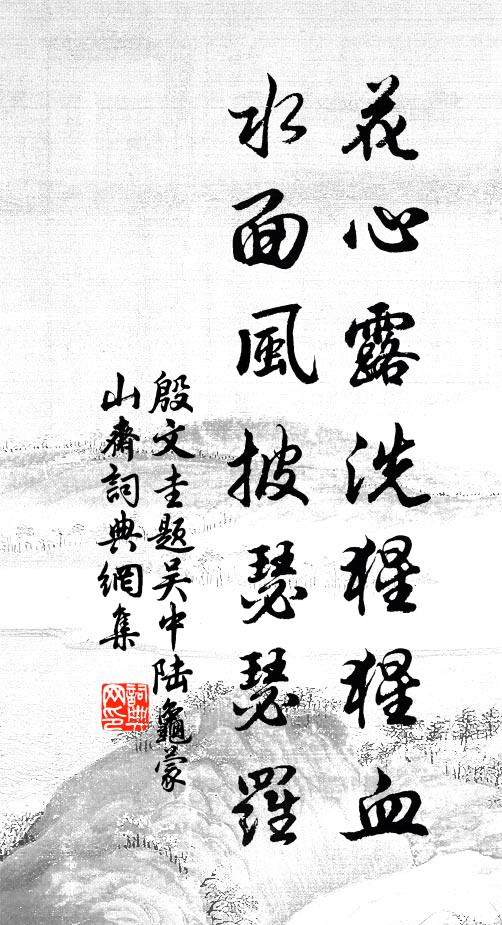 花心露洗猩猩血
水面風披瑟瑟羅
殷文圭題吳中陸龜蒙
山齋詞典網集
詞典网印